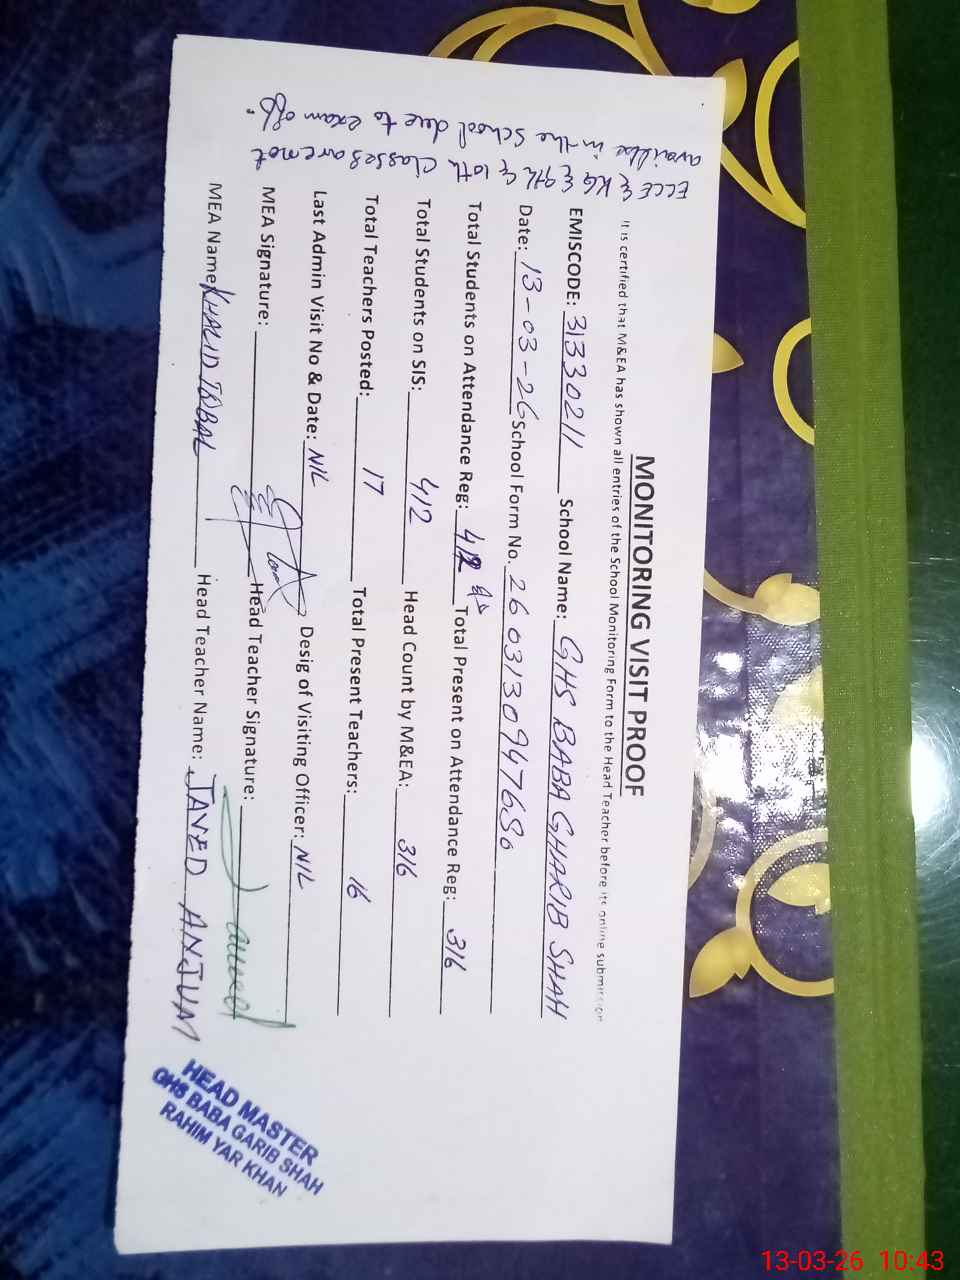 MONITORING VISIT PROOF
It is certified that M&EA has shown all entries of the School Monitoring Form to the Head Teacher before its online submission
EMISCODE: 31330211 School Name: GHS BABA GHARIB SHAH
Date: 13-03-26 School Form No. 
Total Students on Attendance Reg: 412 Total Present on Attendance Reg: 316
Total Students on SIS: 412 Head Count by M&EA: 316
Total Teachers Posted: 17 Total Present Teachers: 16
Last Admin Visit No & Date: NIL Desig of Visiting Officer: NIL
MEA Signature: Head Teacher Signature: Javed
MEA Name: KHALID IQBAL Head Teacher Name: JAVED ANJUM
HEAD MASTER
GHS BABA GARIB SHAH
RAHIM YAR KHAN
ECCE & KG & 9th & 10th Classes are not
availbe in the School due to exam off.
13-03-26 10:43